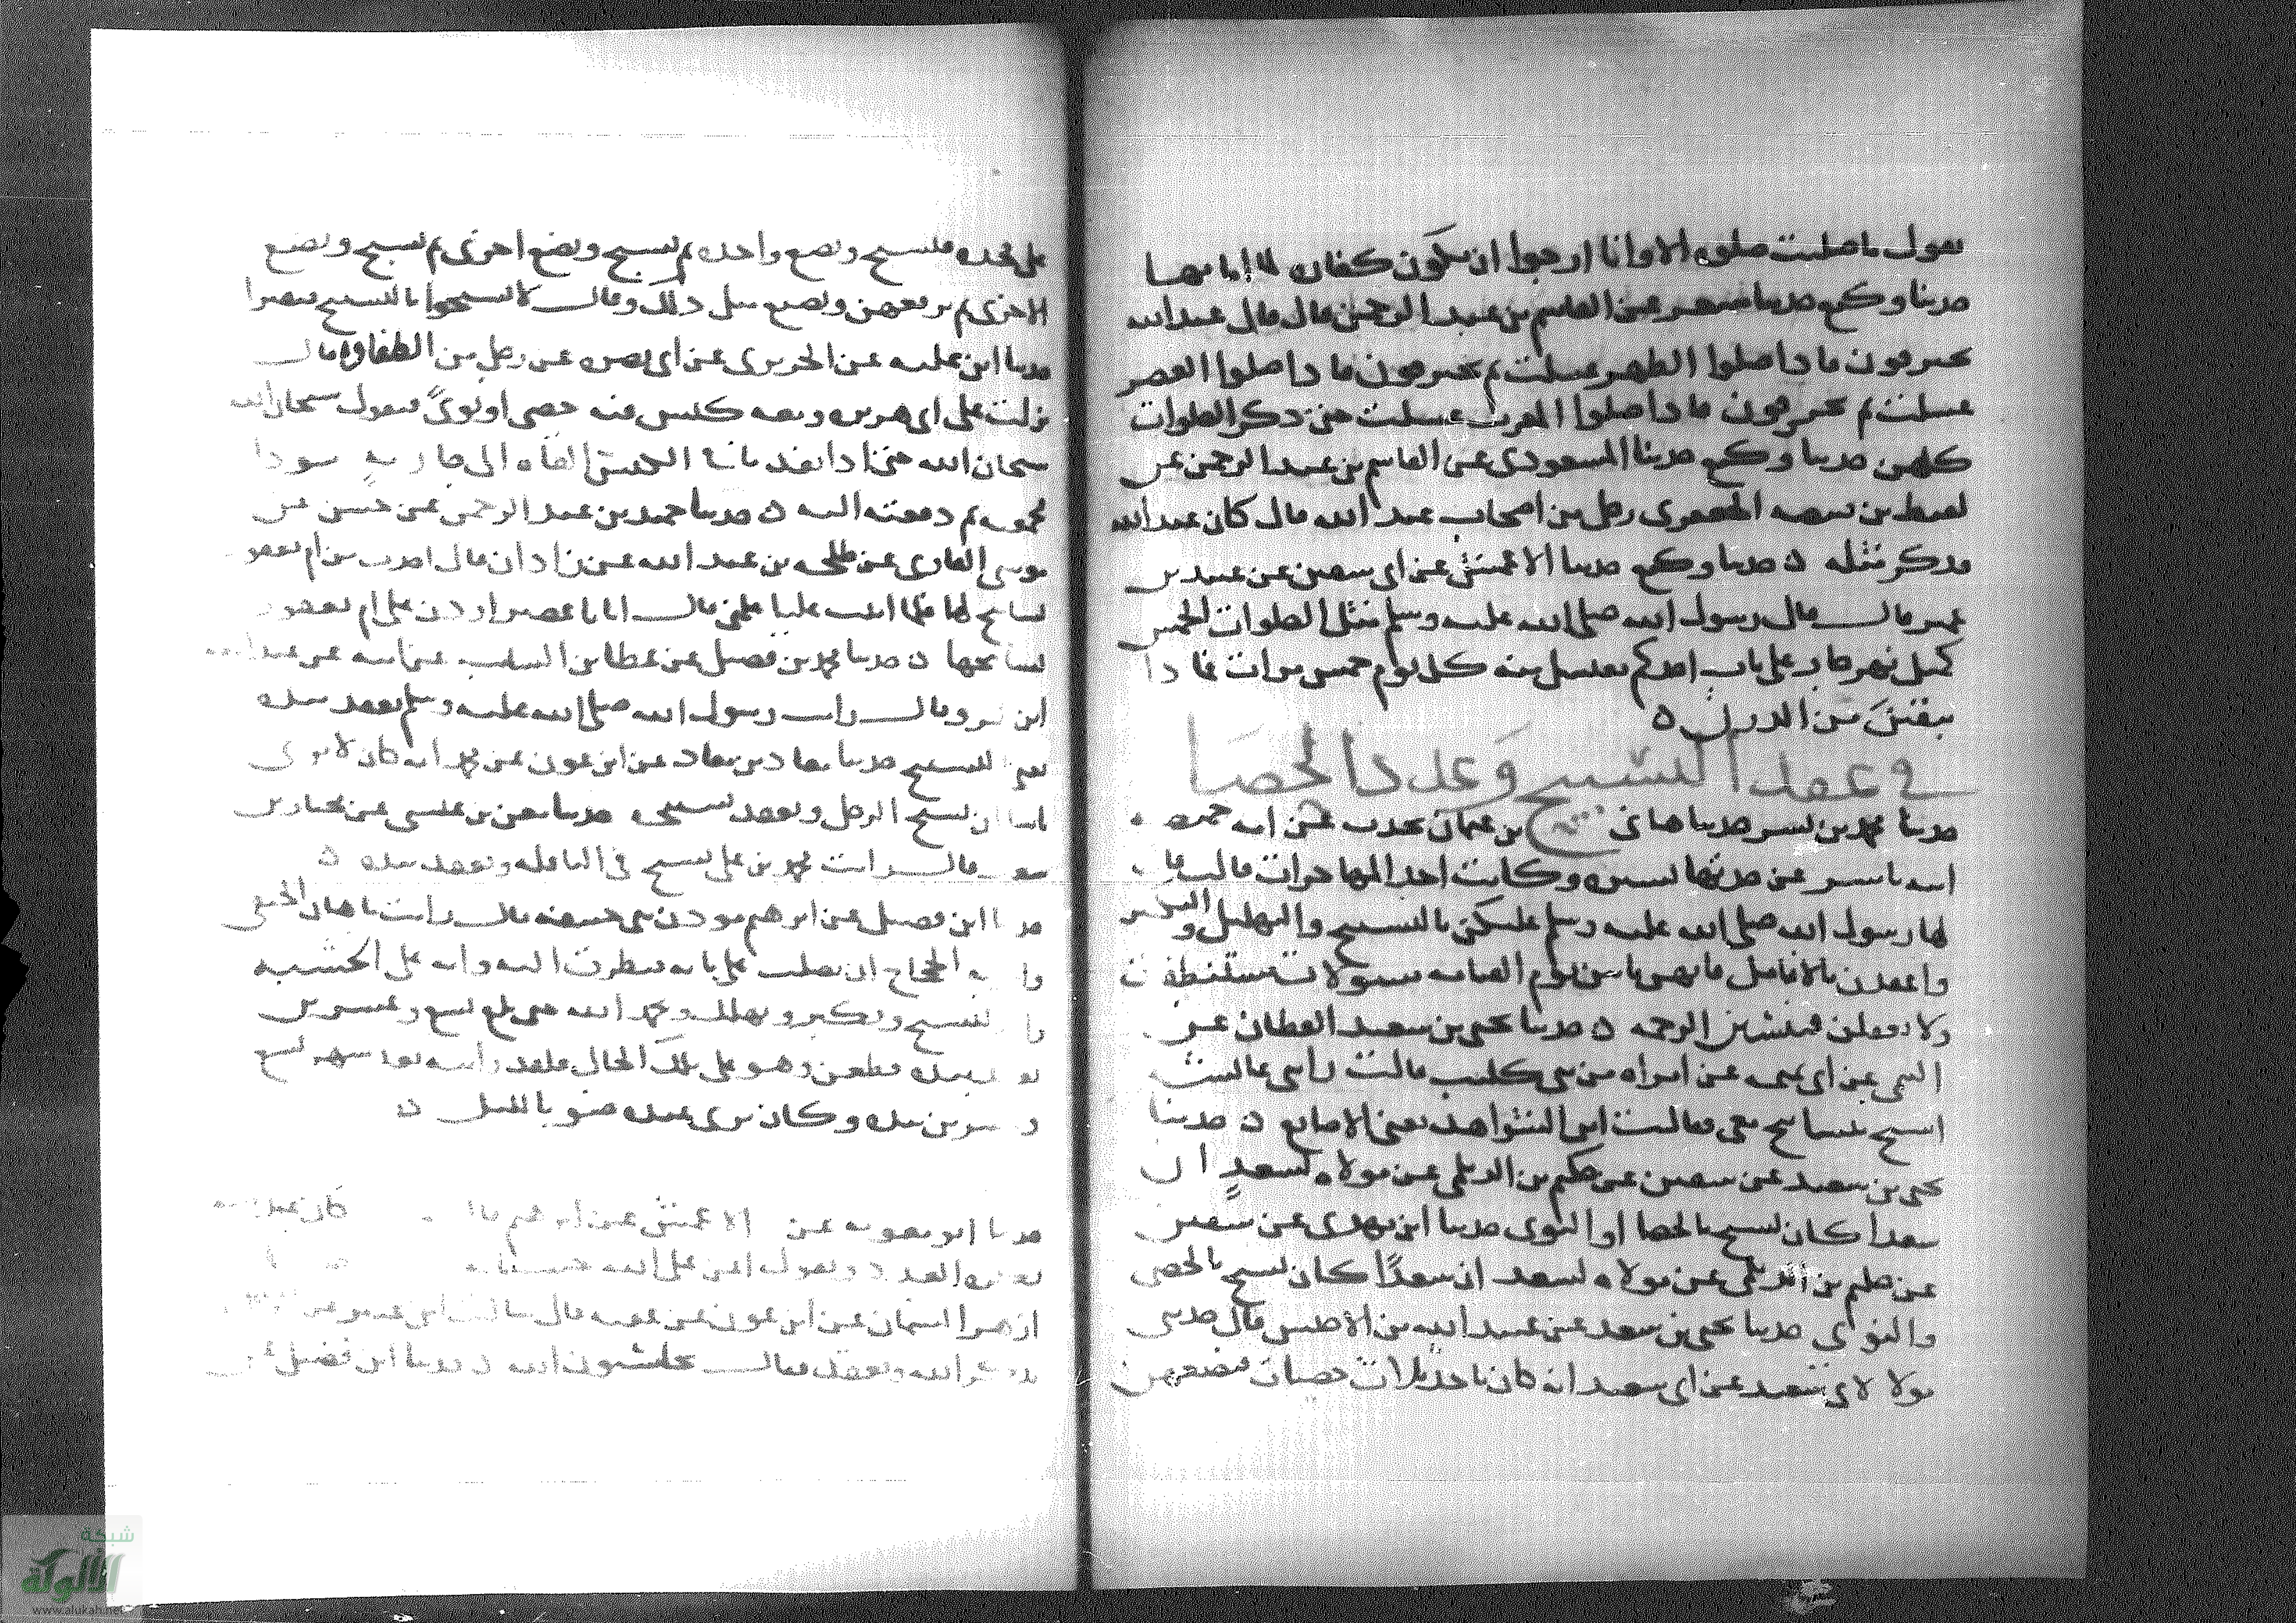 يقول ما صليت صلوه الا وانا ارجوا ان يكون كفاره لما امامها
حدثنا وكيع حدثنا مسعر عن القاسم بن عبد الرحمن قال قال عبد الله
تحترقون فاذا صلوا الظهر غسلت ثم تحترقون فاذا صلوا العصر
غسلت ثم تحترقون فاذا صلوا المغرب غسلت حتى ذكر الصلوات
كلهن حدثنا وكيع حدثنا المسعودي عن القاسم بن عبد الرحمن عن
لقيط بن قبيصه رجل من اصحاب عبد الله قال كان عبد الله
فذكر مثله ه حدثنا وكيع حدثنا الاعمش عن ابي سفين عن عبيد بن
عمير قال قال رسول الله صلى الله عليه وسلم مثل الصلوات الخمس
كمثل نهر جار على باب احدكم يغتسل منه كل يوم خمس مرات فماذا
يبقين من الدرن ه
في عقد التسبيح وعدد الحصا
حدثنا محمد بن بشر حدثنا هانئ بن عثمان يحدث عن امه حميضه
ابنه ياسر عن جدتها يسيره وكانت احد المهاجرات قالت قال
لها رسول الله صلى الله عليه وسلم عليكن بالتسبيح والتهليل والتكبير
واعقدن بالانامل فانهن ياتين يوم القيامه مسولات مستنطقات
ولا تغفلن فتنسين الرحمه ه حدثنا يحيى بن سعيد القطان عن
التيمي عن ابي تميمه عن امراه من بني كليب قالت راتني عائشه
اسبح بتسابيح معي فقالت اين الشواهد يعني الاصابع ه حدثنا
يحيى بن سعيد عن سفين عن حكيم بن الديلمي عن مولاه لسعد ان
سعدا كان يسبح بالحصا او النوى حدثنا ابن مهدي عن سفين
عن حكيم بن الديلمي عن مولاه لسعد ان سعدا كان يسبح بالحصى
والنوى حدثنا يحيى بن سعيد عن عبيد الله بن الاخنس قال حدثني
مولا لابي سعيد عن ابي سعيد انه كان ياخذ ثلاث حصيات فيضعهن
على فخذه فيسبح ويضع واحده ثم يسبح ويضع اخرى ثم يسبح ويضع
الاخرى ثم يرفعهن ويصنع مثل ذلك وقال لا تسبحوا بالتسبيح صفيرا
حدثنا ابن عليه عن الجريري عن ابي نضره عن رجل من الطفاوه قال
نزلت على ابي هريره ومعه كيس فيه حصى او نوى فيقول سبحان الله
سبحان الله حتى اذا نفد ما في الكيس القاه الى جاريه سودا
فجمعته ثم دفعته اليه ه حدثنا حميد بن عبد الرحمن عن حسن عن
موسى القاري عن طلحه بن عبد الله عن زاذان قال اخذت من ام يعفور
تسابيح لها فلما اتيت عليا علمني قال ابا عمر اردد على ام يعفور
تسابيحها ه حدثنا محمد بن فضيل عن عطا بن السايب عن ابيه عن عبد الله
ابن عمرو قال رايت رسول الله صلى الله عليه وسلم يعقد بيده
يعني التسبيح حدثنا معاذ بن معاذ عن ابن عون عن محمد انه كان لا يرى
باسا ان يسبح الرجل ويعقد تسبيحه حدثنا معن بن عيسى عن مختار بن
سعد قال رايت محمد بن علي يسبح في النافله ويعقد بيده ه
حدثنا ابن فضيل عن ابرهيم مؤذن بني حنيفه قال رايت ماهان الحنفي
وامر به الحجاج ان يصلب على بابه فنظرت اليه وانه على الخشبه
وهو يسبح ويكبر ويهلل ويحمد الله حتى بلغ تسع وعشرين
يعقد بيده فطعن وهو على تلك الحال فلقد رايته بعد شهر تسع
وعشرين بيده وكان يرى عنده ضوا بالليل ه
حدثنا ابو معويه عن الاعمش عن ابرهيم قال كان عبد الله
يكره العدد ويقول ايمن على الله حسناته
ازهر السمان عن ابن عون عن عقبه قال سالت ابن عمر عن الرجل
يذكر الله ويعقد فقال تحاسبون الله ه حدثنا ابن فضيل عن